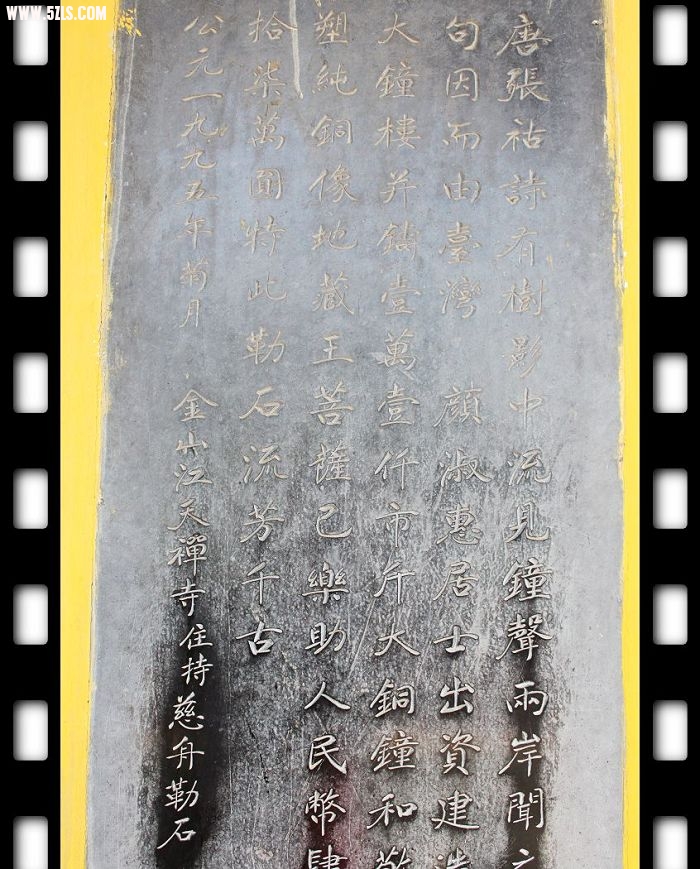 WWW.5ZLS.COM
唐張祜詩有樹影中流見鐘聲兩岸聞之
句因而由臺灣 顔淑惠居士出資建造
大鐘樓并鑄壹萬壹仟市斤大銅鐘和敬
塑純銅像地藏王菩薩已樂助人民幣肆
拾柒萬圓特此勒石流芳千古
公元一九九五年荷月 金山江天禪寺住持慈舟勒石